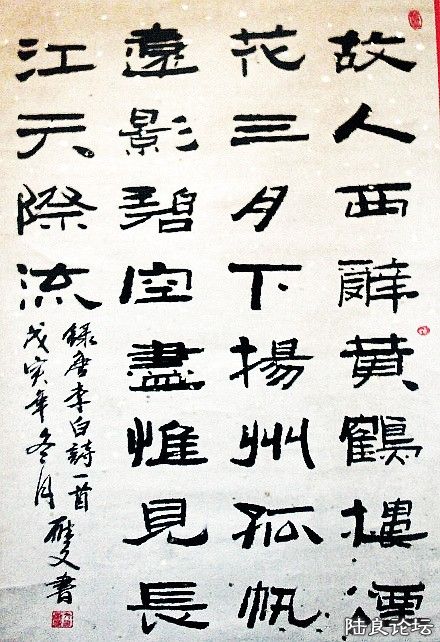 故人西辭黄鶴樓煙
花三月下揚州孤帆
遠影碧空盡惟見長
江天際流
錄唐李白詩一首
戊寅年冬月 書
陆良论坛